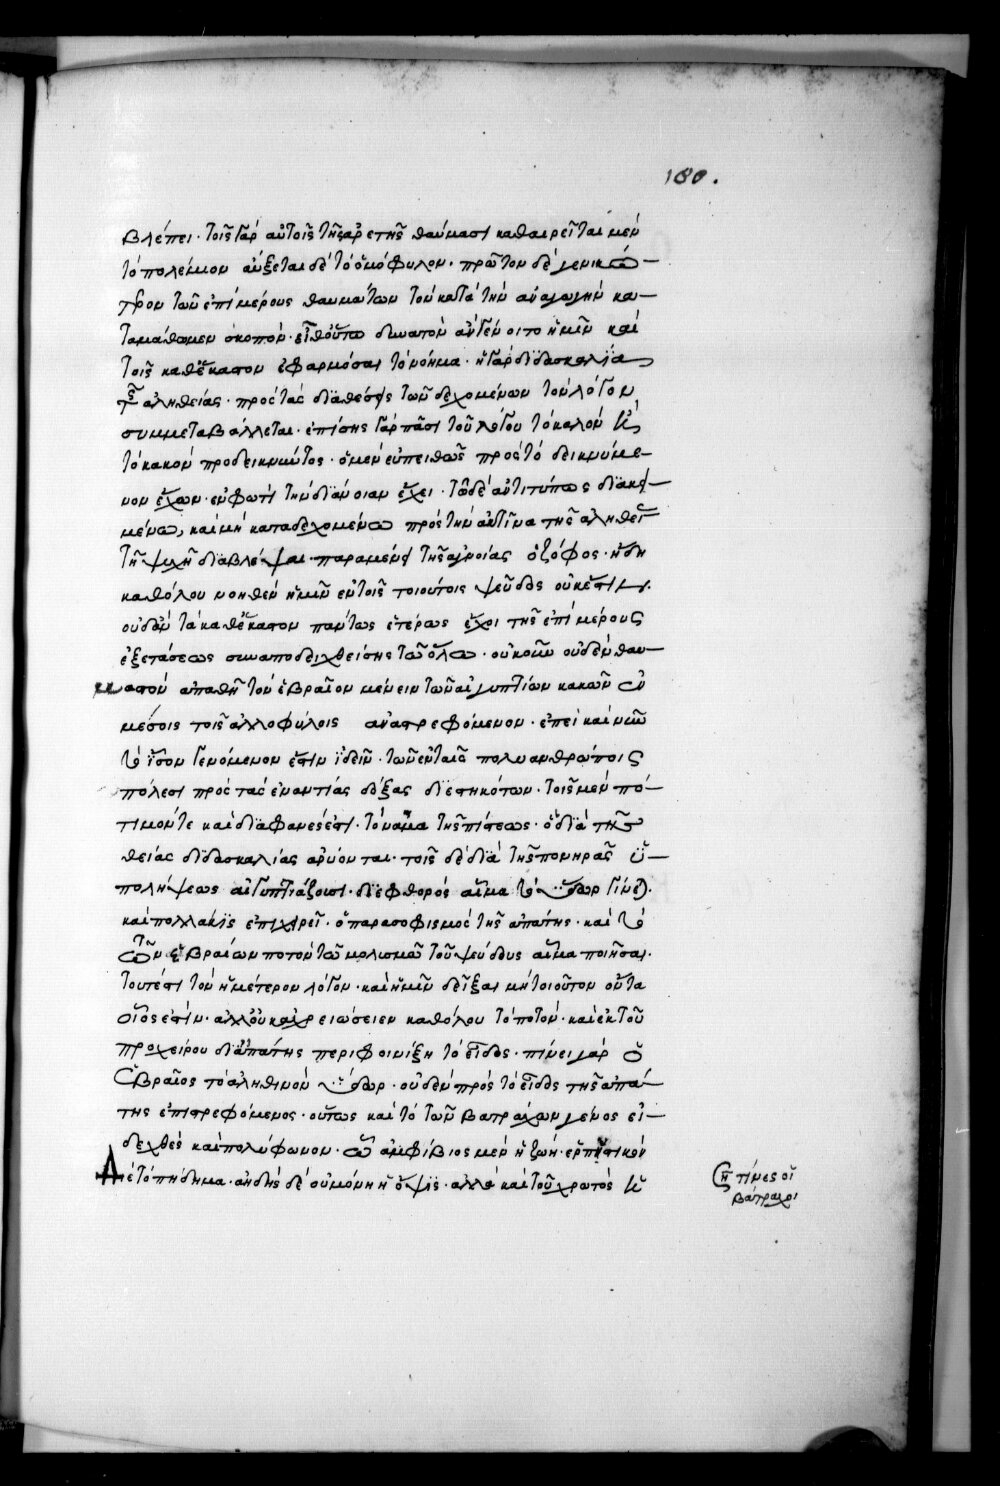 180.
βλέπει· τοῖς γὰρ αὐτοῖς τῆς ἀρετῆς θαύμασι καθαιρεῖται μὲν
τὸ πολέμιον αὔξεται δὲ τὸ ὁμόφυλον· πρῶτον δὲ γενικώ-
τερον τῶν ἐπιμέρους θαυμάτων τὸν κατὰ τὴν ἀναγωγὴν κα-
ταμάθωμεν σκοπόν· εἶθ οὕτω δυνατὸν ἂν γένοιτο ἡμῖν καὶ
τοῖς καθέκαστον ἐφαρμόσαι τὸ νόημα· ἡ γὰρ διδασκαλία
τῆς ἀληθείας· πρὸς τὰς διαθέσεις τῶν δεχομένων τὸν λόγον,
συμμεταβάλλεται· ἐπίσης γὰρ πᾶσι τοῦ λόγου τὸ καλὸν κ̀
τὸ κακὸν προδεικνύντος· ὁ μὲν εὐπειθῶς πρὸς τὸ δεικνύμε-
νον ἔχων· ἐν φωτὶ τὴν διάνοιαν ἔχει· τῶ δὲ ἀντιτύπως διακει-
μένω, καὶ μὴ καταδεχομένω πρὸς τὴν ἀκτῖνα τῆς ἀληθεί
τῆ ψυχῆ διαβλέψαι· παραμένει τῆς ἀγνοίας ὁ ζόφος· ἤδη
καθόλου νοηθὲν ἡμῖν ἐν τοῖς τοιούτοις ψεῦδος οὐκ ἔστιν·
οὐδ ἂν τὰ καθέκαστον πάντως ἑτέρως ἔχοι τῆς ἐπιμέρους
ἐξετάσεως συναποδειχθείσης τῶ ὅλω· οὐκοῦν οὐδὲν θαυ-
μαστὸν ἀπαθῆ τὸν ἑβραῖον μένειν τῶν αἰγυπτίων κακῶν ἐν
μέσοις τοῖς ἀλλοφύλοις ἀναστρεφόμενον· ἐπεὶ καὶ νῦν
τὸ ἴσον γενόμενον ἔστιν ἰδεῖν· τῶν ἐν ταῖς πολυανθρώποις
πόλεσι πρὸς τὰς ἐναντίας δόξας διεστηκότων· τοῖς μὲν πό-
τιμόν τε καὶ διαφανές ἐστι· τὸ νᾶμα τῆς πίστεως· ὃ διὰ τῆς
θείας διδασκαλίας ἀρύονται· τοῖς δὲ διὰ τῆς πονηρᾶς ὑ-
πολήψεως αἰγυπτιάζουσι· διεφθορὸς αἷμα τὸ ὕδωρ γίνεται·
καὶ πολλάκις ἐπιχειρεῖ· ὁ παρασοφισμὸς τῆς ἀπάτης· καὶ τὸ
τῶν ἑβραίων ποτὸν τῶ μολυσμῶ τοῦ ψεύδους αἷμα ποιῆσαι·
τουτέστι τὸν ἡμέτερον λόγον· καὶ ἡμῖν δεῖξαι μὴ τοιοῦτον ὄντα
οἷός ἐστιν· ἀλλ οὐκ ἀχρειώσειεν καθόλου τὸ ποτόν· κἂν ἐκ τοῦ
προχείρου δι ἀπάτης περιφοινίξη τὸ εἶδος· πίνει γὰρ ὁ
ἑβραῖος τὸ ἀληθινὸν ὕδωρ· οὐδὲν πρὸς τὸ εἶδος τῆς ἀπά-
της ἐπιστρεφόμενος· οὕτως καὶ τὸ τῶν βατράχων γένος εἰ-
δεχθὲς καὶ πολύφωνον· ὧ ἀμφίβιος μὲν ἡ ζωή· ἑρπυστικὸν
δὲ τὸ πήδημα· ἀηδὴς δὲ οὐ μόνη ἡ ὄψις· ἀλλὰ καὶ τοῦ χρωτὸς ἡ
ση τίνες οἱ
βάτραχοι